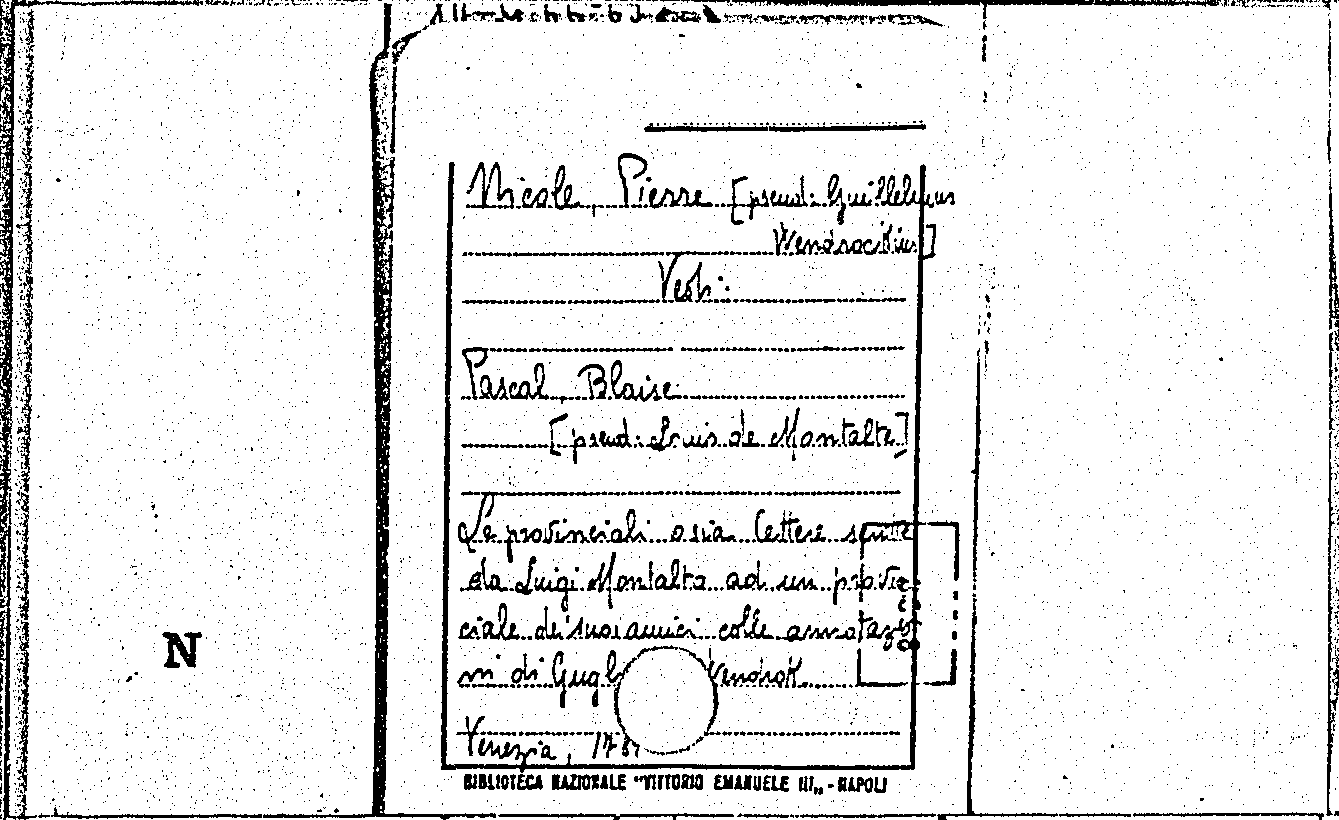 Nicole, Pierre [pseud: Guillelmus
Wendrockius]
Vedi:
Pascal, Blaise
[pseud: Louis de Montalte]
Le provinciali o sia lettere scritte
da Luigi Montalto ad un provin
ciale de' suoi amici colle annotazio
ni di Gugl Vendrok
Venezia, 178
N
BIBLIOTECA NAZIONALE "VITTORIO EMANUELE III„ - NAPOLI